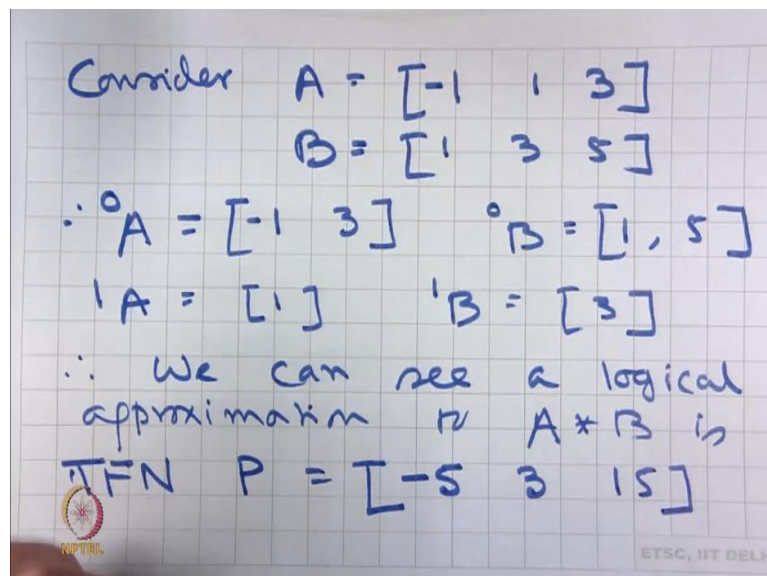 Consider A = [-1 1 3]
B = [1 3 5]
∴ ⁰A = [-1 3] ⁰B = [1, 5]
¹A = [1] ¹B = [3]
∴ We can see a logical
approximation to A * B is
TFN P = [-5 3 15]
NPTEL
ETSC, IIT DELH